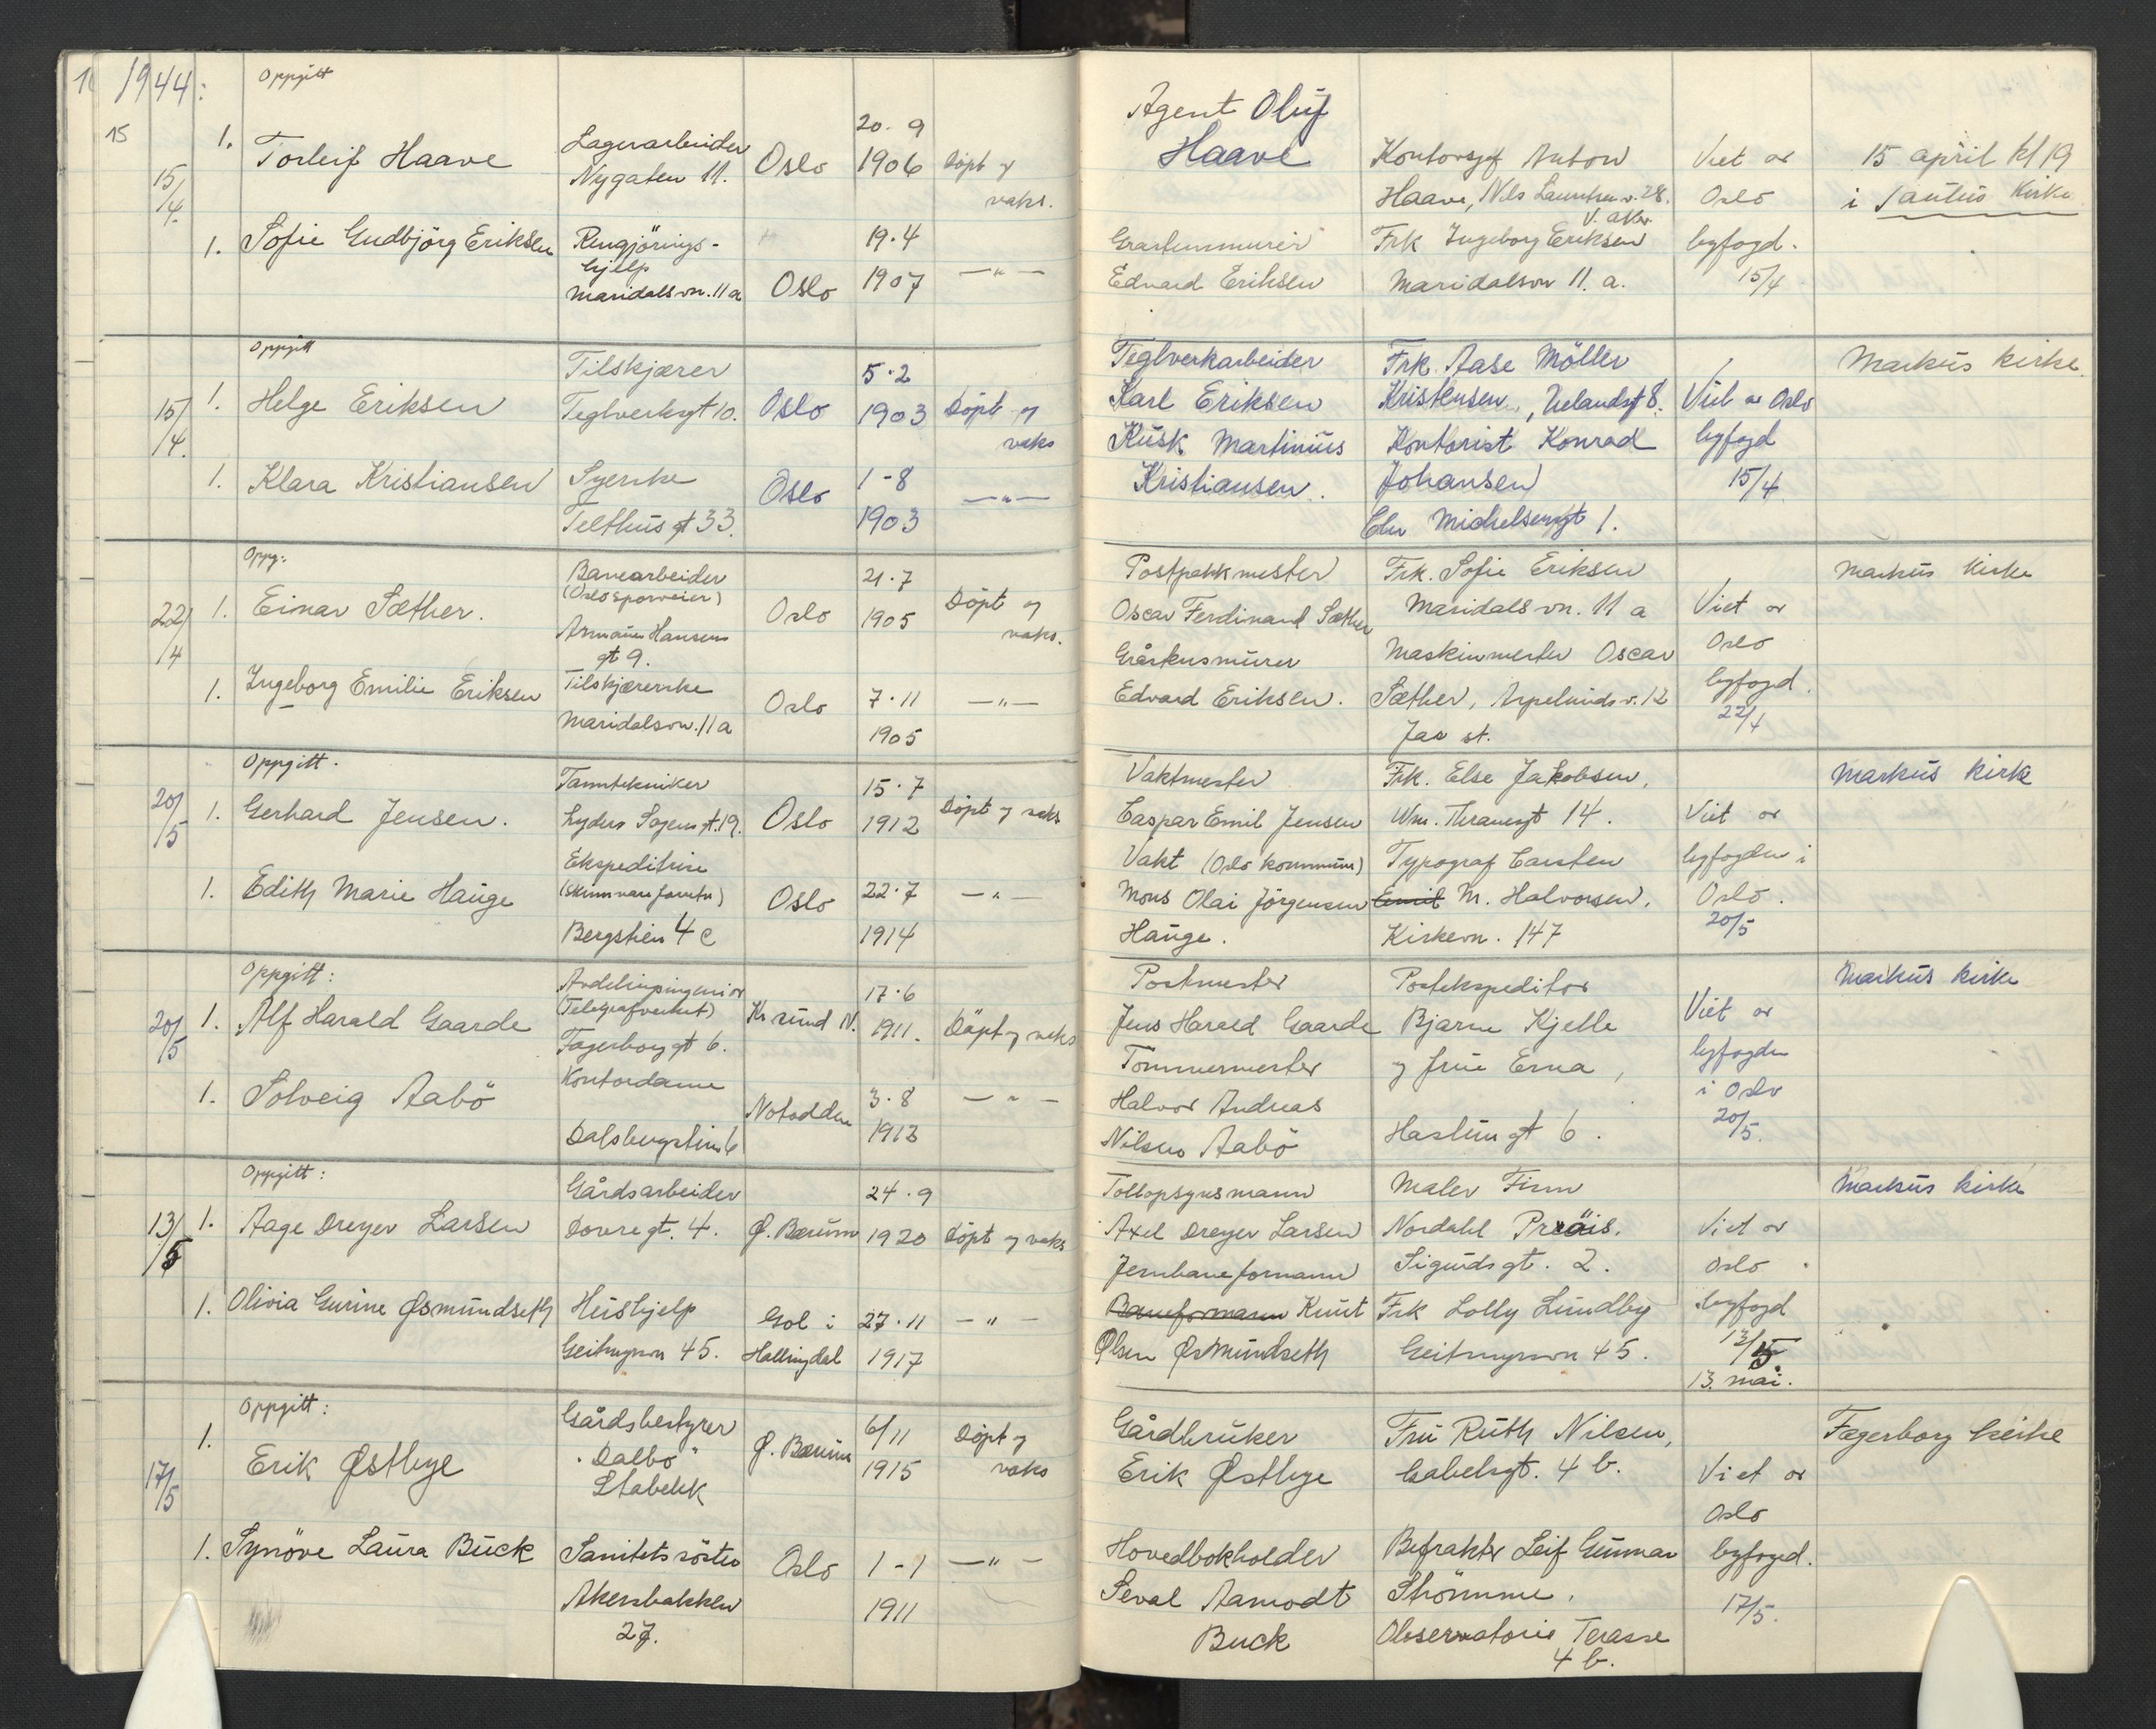 1944:
Oppgitt
15
15/4.
1. Torleif Haave
Lagerarbeider
Nygaten 11.
Oslo
20. 9
1906
Döpt og
vaks.
Agent Oluf
Haave
Kontorsjef Anton
Haave, Nils Lauritsens v. 28.
V. Aker
Viet av
Oslo
15 april kl 19
i Paulus Kirke
1. Sofie Gudbjörg Eriksen
Rengjörings-
hjelp
Maridalsvn. 11 a
Oslo
19.4
1907
— " —
Edvard Eriksen
Frk Ingeborg Eriksen
Maridalsvn 11. a.
byfogd.
15/4
Oppgitt
15/4.
1. Helge Eriksen
Tilskjærer
Teglverksgt 10.
Oslo
5.2
1903
Döpt og
vaks
Teglverkarbeider
Karl Eriksen
Frk. Aase Möller
Kristensen, Uelandsgt 8.
Viet av Oslo
byfogd
15/4
Markus kirke.
1. Klara Kristiansen
Syerske
Telthusgt 33.
Oslo
1-8
1903
— " —
Kusk Martinius
Kristiansen.
Kontorist Konrad
Johansen
Chr Michelsensgt 1.
Oppg:
22/4
1. Einar Sæther.
Banearbeider
(Oslo sporveier)
Armauer Hansens
gt 9.
Oslo
21.7
1905
Döpt og
vaks.
Postpakkmester
Oscar Ferdinand Sæther
Frk. Sofie Eriksen
Maridalsvn. 11 a
Viet av
Oslo
byfogd.
22/4
Markus kirke
1. Ingeborg Emilie Eriksen
Tilskjærerske
Maridalsvn. 11 a
Oslo
7.11
1905
— " —
Edvard Eriksen.
Maskinmester Oscar
Sæther,
Jar st.
Oppgitt.
20/5
1. Gerhard Jensen.
Tanntekniker
Lyder Sagens gt. 19.
Oslo
15.7
1912
Döpt og vaks
Vaktmester
Caspar Emil Jensen
Frk. Else Jakobsen,
Wm. Thranesgt 14.
Viet av
byfogden i
Oslo.
20/5
Markus kirke
1. Edith Marie Hauge
Ekspeditrise
Bergstien 4 c
Oslo
22.7
1914
— " —
Vakt (Oslo kommune)
Mons Olai Jörgensen
Hauge.
Typograf Carsten
Emil M. Halvorsen.
Kirkevn. 147
Oppgitt:
20/5
1. Alf Harald Gaarde
Avdelingsingeniør
(Telegrafverket)
Fagerborggt 6.
Kr.sund N.
17.6
1911.
Döpt og vaks
Postmester
Jens Harald Gaarde
Postekspeditør
Bjarne Kjelle
og frue Erna,
Viet av
byfogden
i Oslo
20/5.
Markus kirke
1. Solveig Aabö
Kontordame
Dalsbergstien 6
Notodden
3.8
1913
— " —
Tömmermester
Halvor Andreas
Nilsen Aabö
gt 6.
Oppgitt:
13/5
1. Aage Dreyer Larsen
Gårdsarbeider
Dovregt. 4.
Ø. Bærum
24.9
1920
Döpt og vaks
Tollopsynsmann
Axel Dreyer Larsen
Maler Finn
Nordahl
Sigurdsgt. 2.
Viet av
Oslo
byfogd
13/5.
13. mai.
Markus kirke
1. Olivia Gurine Øsmundseth
Hushjelp
Geitmyrsvn 45.
Gol i
Hallingdal
27.11
1917
— " —
Jernbaneformann
Baneformann Knut
Olsen Øsmundseth
Frk Lolly Lundby
Geitmyrsvn 45.
Oppgitt:
17/5
1. Erik Østbye
Gårdsbestyrer
"Dalbo"
Stabekk
Ø. Bærum
6/11
1915
Döpt og
vaks
Gårdbruker
Erik Østbye
Fru Ruth Nilsen,
Gabelsgt. 4 b.
Viet av
Oslo
byfogd.
17/5.
Fagerborg kirke
1. Synöve Laura Buck
Sanitetssöster
Akersbakken
27.
Oslo
1-1
1911
— " —
Hovedbokholder
Seval Aamodt
Buck
Befrakter Leif Gunnar
Strömme,
Observatorie Terasse
4 b.